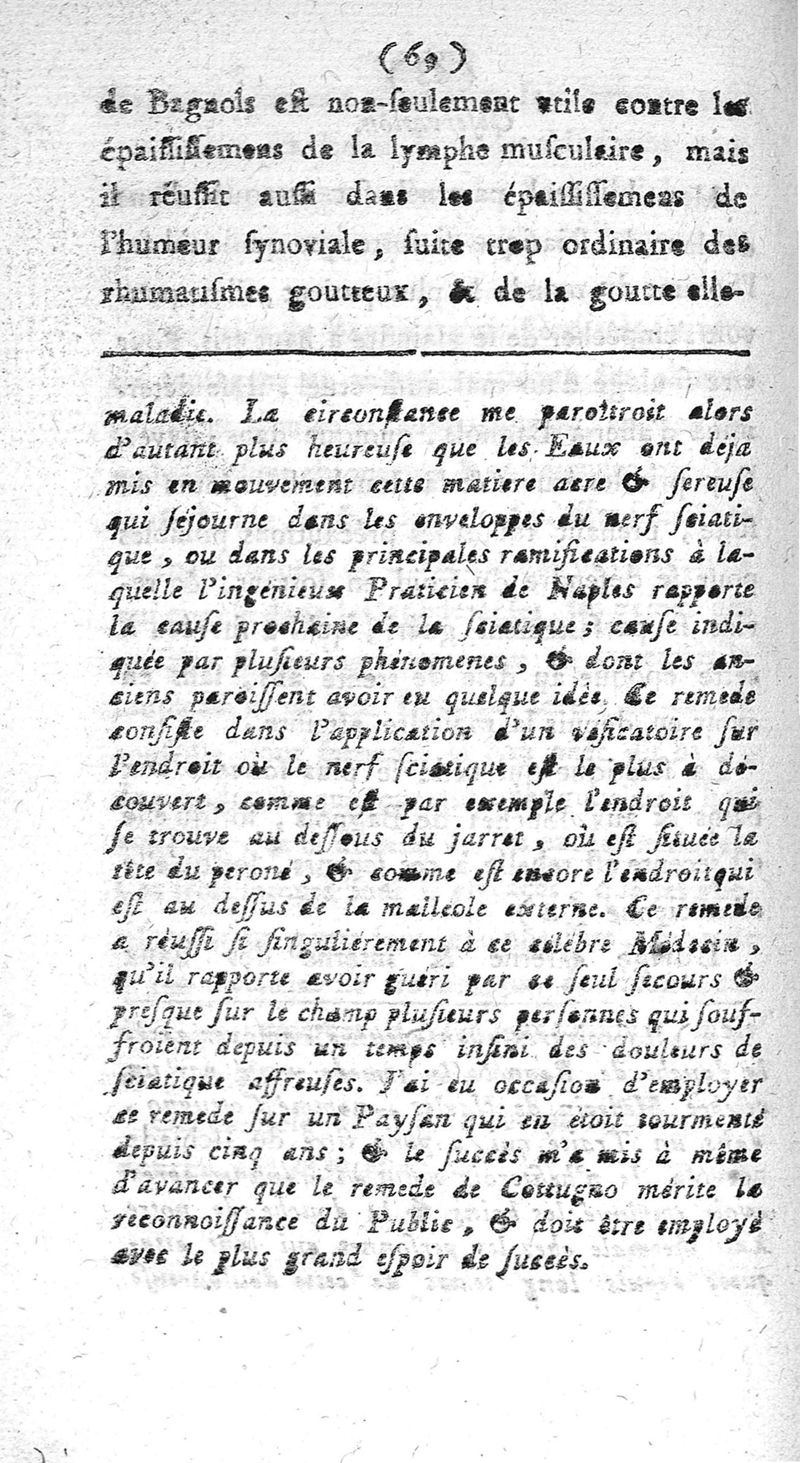 ( 69 )
de Bagnols eſt non-ſeulement utile contre les
épaiſſiſſemens de la lymphe muſculaire, mais
il réuſſit auſſi dans les épaiſſiſſemens de
l'humeur ſynoviale, ſuite trop ordinaire des
rhumatiſmes goutteux, & de la goutte elle-
maladie. La circonſtance me paroîtroit alors
d'autant plus heureuſe que les Eaux ont déja
mis en mouvement cette matiere acre & ſereuſe
qui ſéjourne dans les enveloppes du nerf ſciati-
que, ou dans les principales ramifications à la-
quelle l'ingénieux Praticien de Naples rapporte
la cauſe prochaine de la ſciatique; cauſe indi-
quée par pluſieurs phénomenes, & dont les an-
ciens paroiſſent avoir eu quelque idée. Ce remede
conſiſte dans l'application d'un véſicatoire ſur
l'endroit où le nerf ſciatique eſt le plus à dé-
couvert, comme eſt par exemple l'endroit qui
ſe trouve au deſſous du jarret, où eſt ſituée la
tête du peroné, & comme eſt encore l'endroit qui
eſt au deſſus de la malleole externe. Ce remede
a réuſſi ſi ſinguliérement à ce célébre Médecin,
qu'il rapporte avoir guéri par ce ſeul ſecours &
preſque ſur le champ pluſieurs perſonnes qui ſouf-
froient depuis un temps infini des douleurs de
ſciatique affreuſes. J'ai eu occaſion d'employer
ce remede ſur un Payſan qui en étoit tourmenté
depuis cinq ans; & le ſuccès m'a mis à même
d'avancer que le remede de Cottugno mérite la
reconnoiſſance du Public, & doit être employé
avec le plus grand eſpoir de ſuccès.